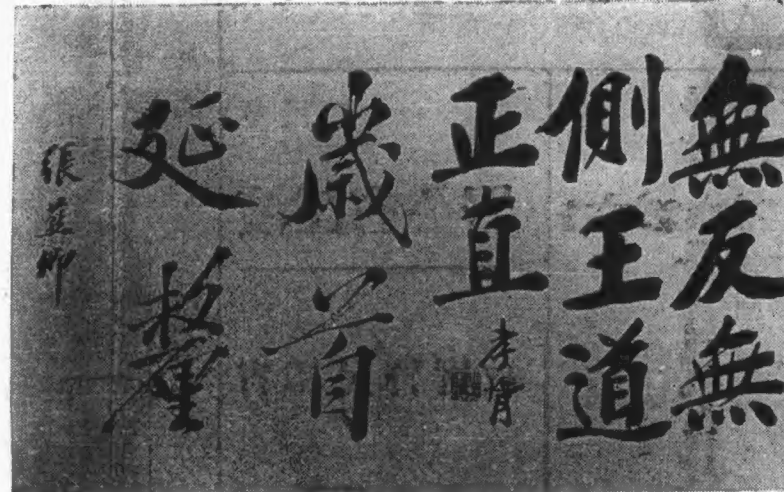 無反無
側王道
正直
李
歲首
延釐
張 卿